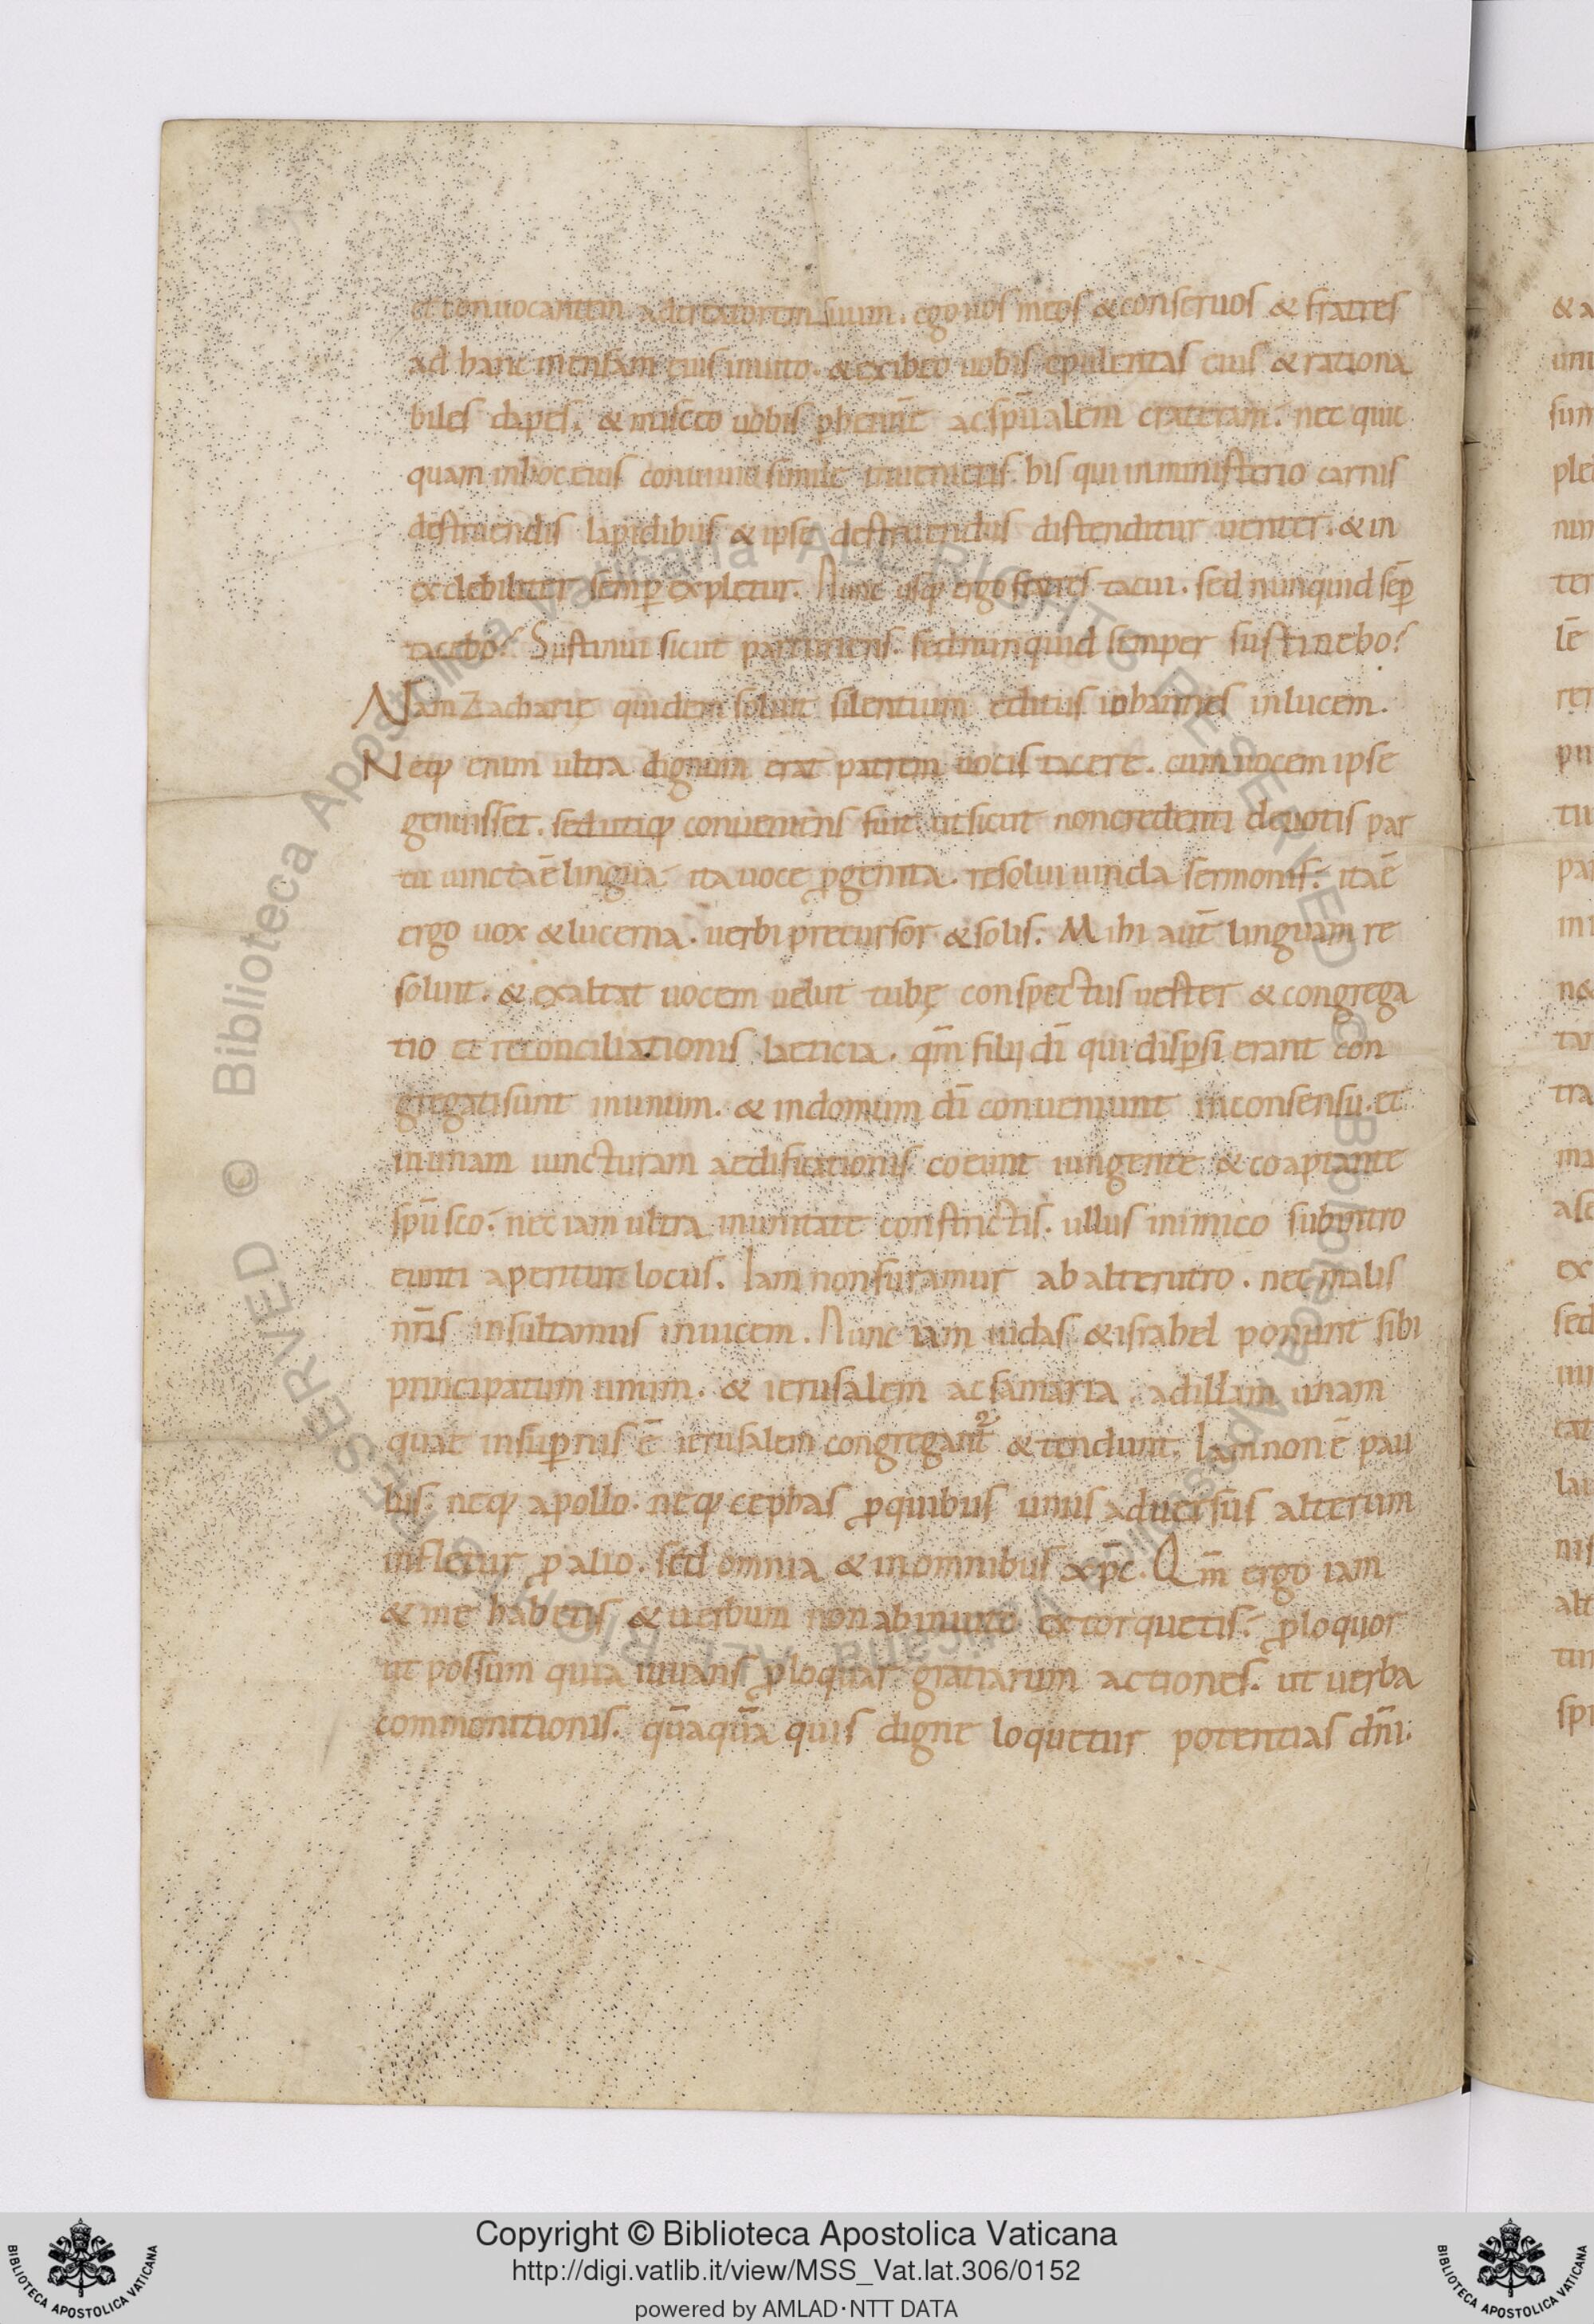 et conuocantem ad creatorem suum. ego uos meos & conseruos & fratres
ad hanc mensam eius inuito. & exibeo uobis epulentas eius & rationa
biles dapes. & misceo uobis phenūt ac spūalem crateram. nec quic
quam in hoc eius conuiuio simile inuenietis. his qui in ministerio carnis
destruendis lapidibus & ipse destruendus distenditur uenter. & in
explebiliter semp̄ expletur. Nunc usq; ergo fratres tacui. sed nunquid sēp
tacebo? Sustinui sicut parturiens. sed nunquid semper sustinebo?
Nam Zacharie quidem soluit silentium editus iohannes in lucem.
Neq; enim ultra dignum erat patrem uocis tacere. cum uocem ipse
genuisset. sed utiq; conueniens fuit ut sicut non credenti de uotis par
tu iuncta ē lingua. ita uoce p̄genita. resolui uincla sermonis. ita ē
ergo uox & lucerna. uerbi precursor & solis. Mihi aūt linguam re
soluit. & exaltat uocem uelut tubę conspectus uester & congrega
tio et reconciliationis laeticia. qm̄ filij dī qui disp̄si erant con
gregati sunt in unum. & in domum dī conueniunt in consensu. et
in unam iuncturam aedificationis coeunt iungente & coaptante
spū sco. nec iam ultra in unitate constrictis. ullus inimico subintro
eunti aperitur locus. Iam non furamur ab alterutro. nec malis
nr̄is insultamus inuicem. Nunc iam iudas & israhel ponunt sibi
principatum unum. & ierusalem ac samaria. ad illam unam
quae in sup̄nis ē ierusalem congregant² & tendunt. Iam non ē pau
lus. neq; apollo. neq; cephas p̄ quibus unus aduersus alterum
infletur p̄ alio. sed omnia & in omnibus xp̄c. Qm̄ ergo iam
& me habetis & uerbum non ab inuito extorquetis. p̄loquor
ut possum quia iuuans p̄loquar gratiarum actiones. ut uerba
commonitionis. quāquā quis digne loquetur potentias dn̄i.
Copyright © Biblioteca Apostolica Vaticana
http://digi.vatlib.it/view/MSS_Vat.lat.306/0152
powered by AMLAD·NTT DATA